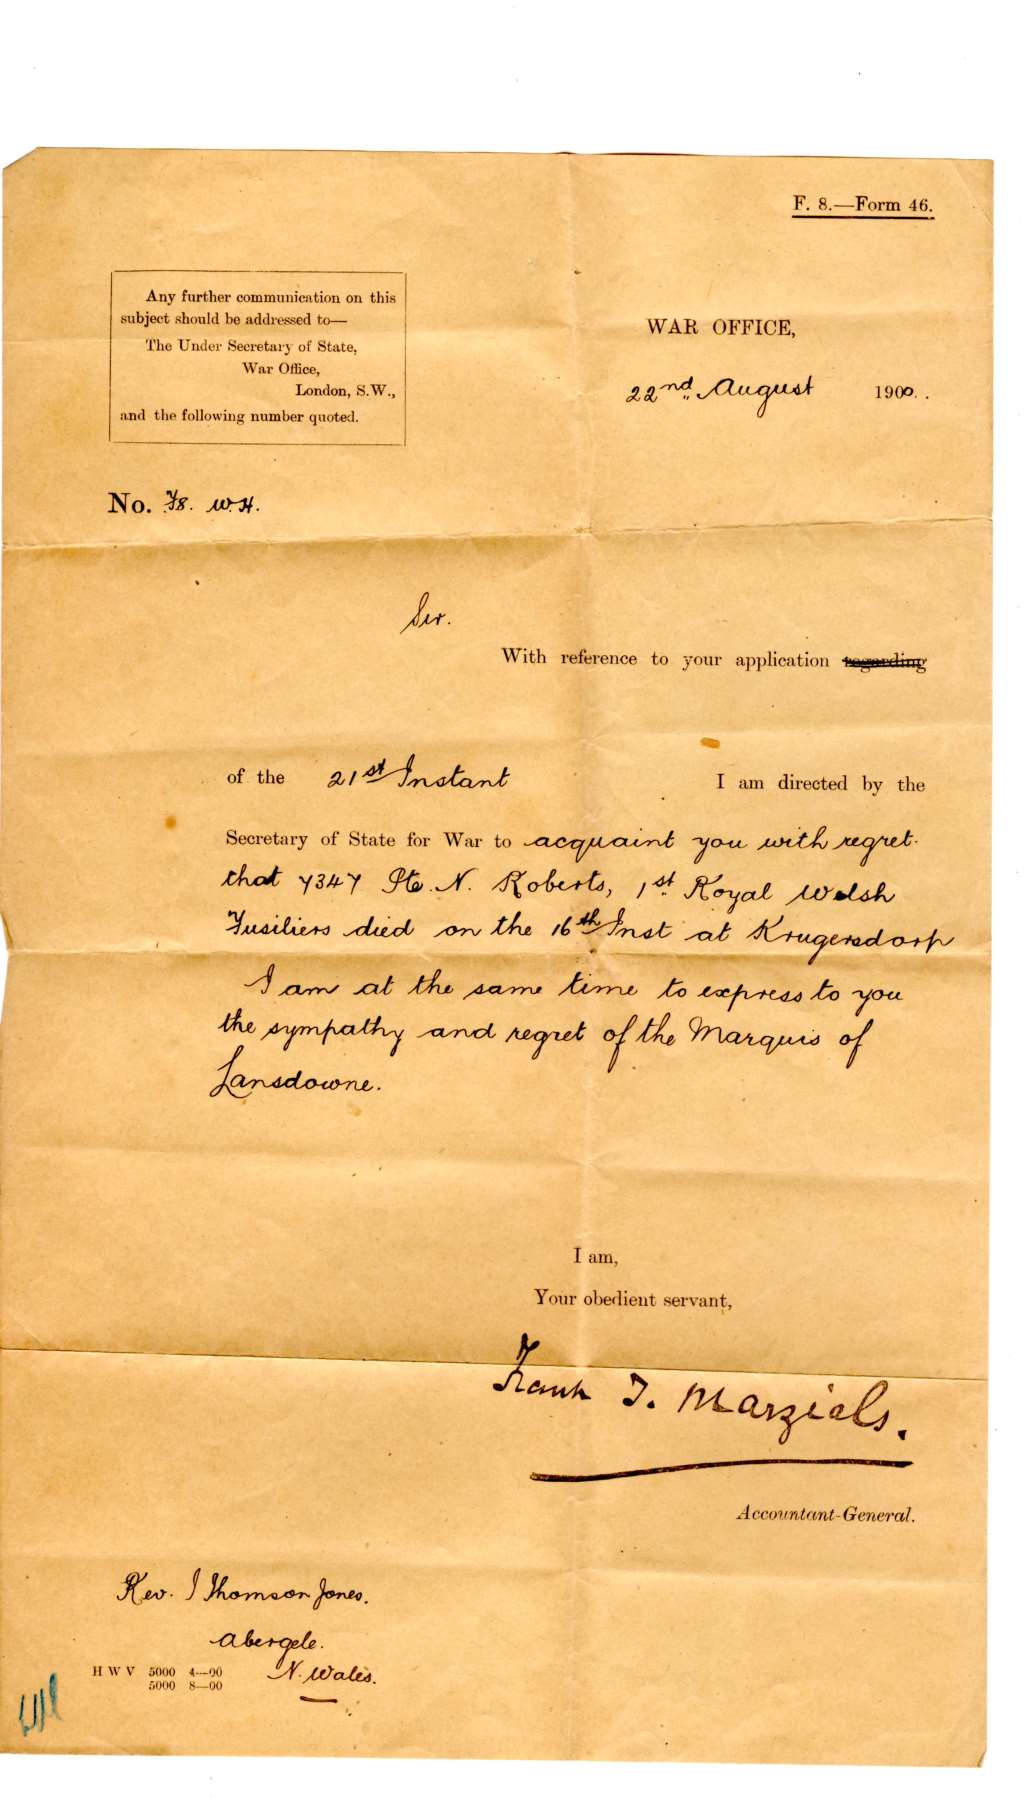 F. 8.—Form 46.
Any further communication on this
subject should be addressed to—
The Under Secretary of State,
War Office,
London, S.W.,
and the following number quoted.
WAR OFFICE,
22nd August 1900.
No. F8. W.H.
Sir.
With reference to your application regarding
of the 21st Instant I am directed by the
Secretary of State for War to acquaint you with regret
that 7347 Pte. N. Roberts, 1st Royal Welsh
Fusiliers died on the 16th Inst at Krugersdorp
I am at the same time to express to you
the sympathy and regret of the Marquis of
Lansdowne.
I am,
Your obedient servant,
Frank T. Marzials.
Accountant-General.
Rev. J Thomson Jones.
Abergele.
N. Wales.
H W V 5000 4—00
5000 8—00